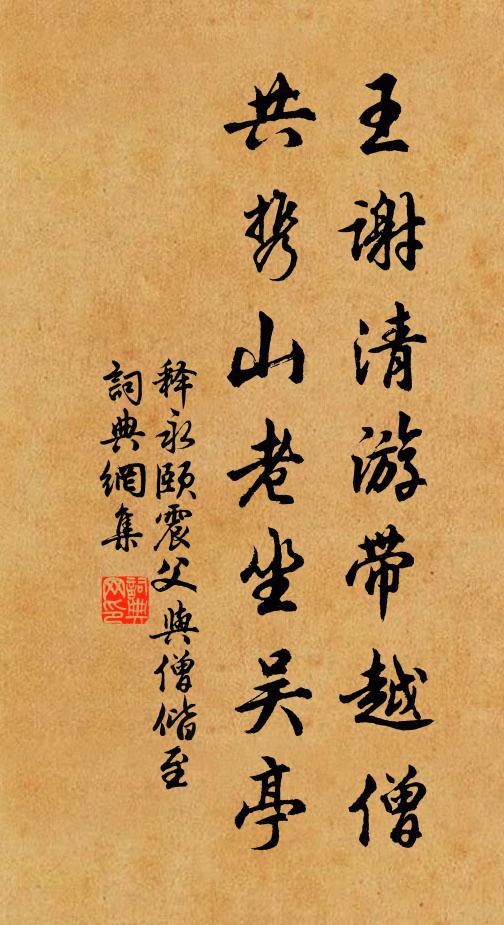 王谢清游带越僧
共携山老坐吴亭
释永颐震父與僧偕至
詞典網集
詞典網印